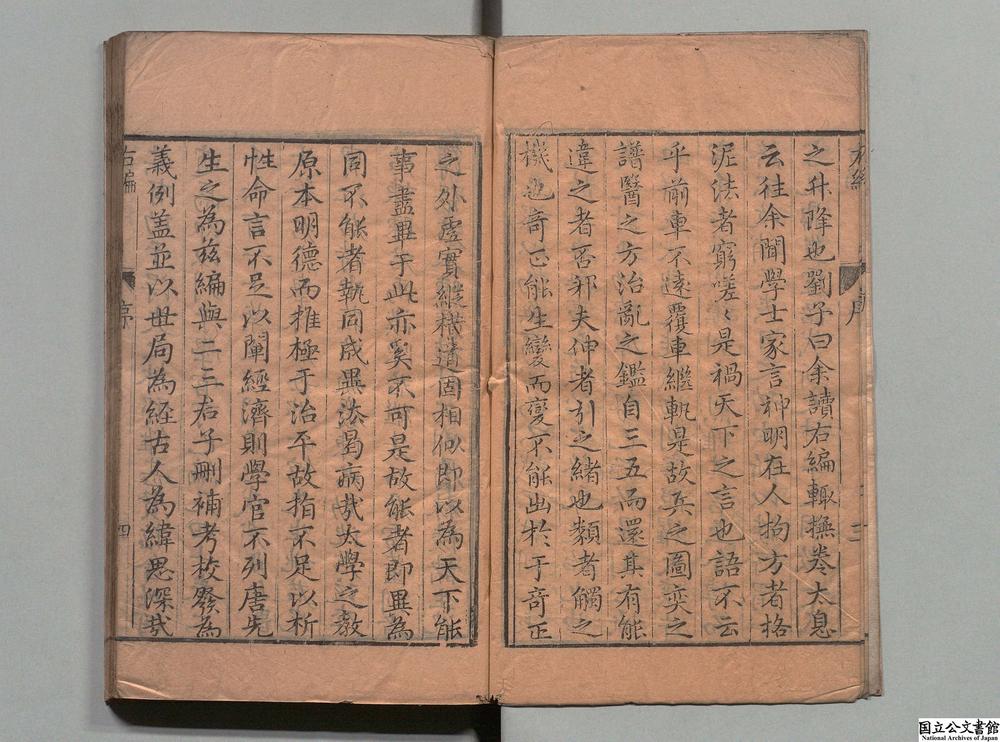 之升降也劉子曰余讀右編輙撫卷大息
云往余聞學士家言神明在人拘方者格
泥法者窮嗟々是禍天下之言也語不云
乎前車不遠覆車繼軌是故兵之圖奕之
譜醫之方治亂之鑑自三五而還其有能
違之者否邪夫伸者引之緒也類者觸之
機也奇正能生變而變不能出於于奇正
之外虛實縱橫道固相似即以為天下能
事盡畢于此亦奚不可是故能者即異為
同不能者執同成異法曷病哉大學之教
原本明德而推極于治平故指不足以析
性命言不足以闡經濟則學官不列唐先
生之為茲編與二三君子刪補考校發為
義例盖並以世局為経古人為緯思深哉
右編
序
四
国立公文書館
National Archives of Japan